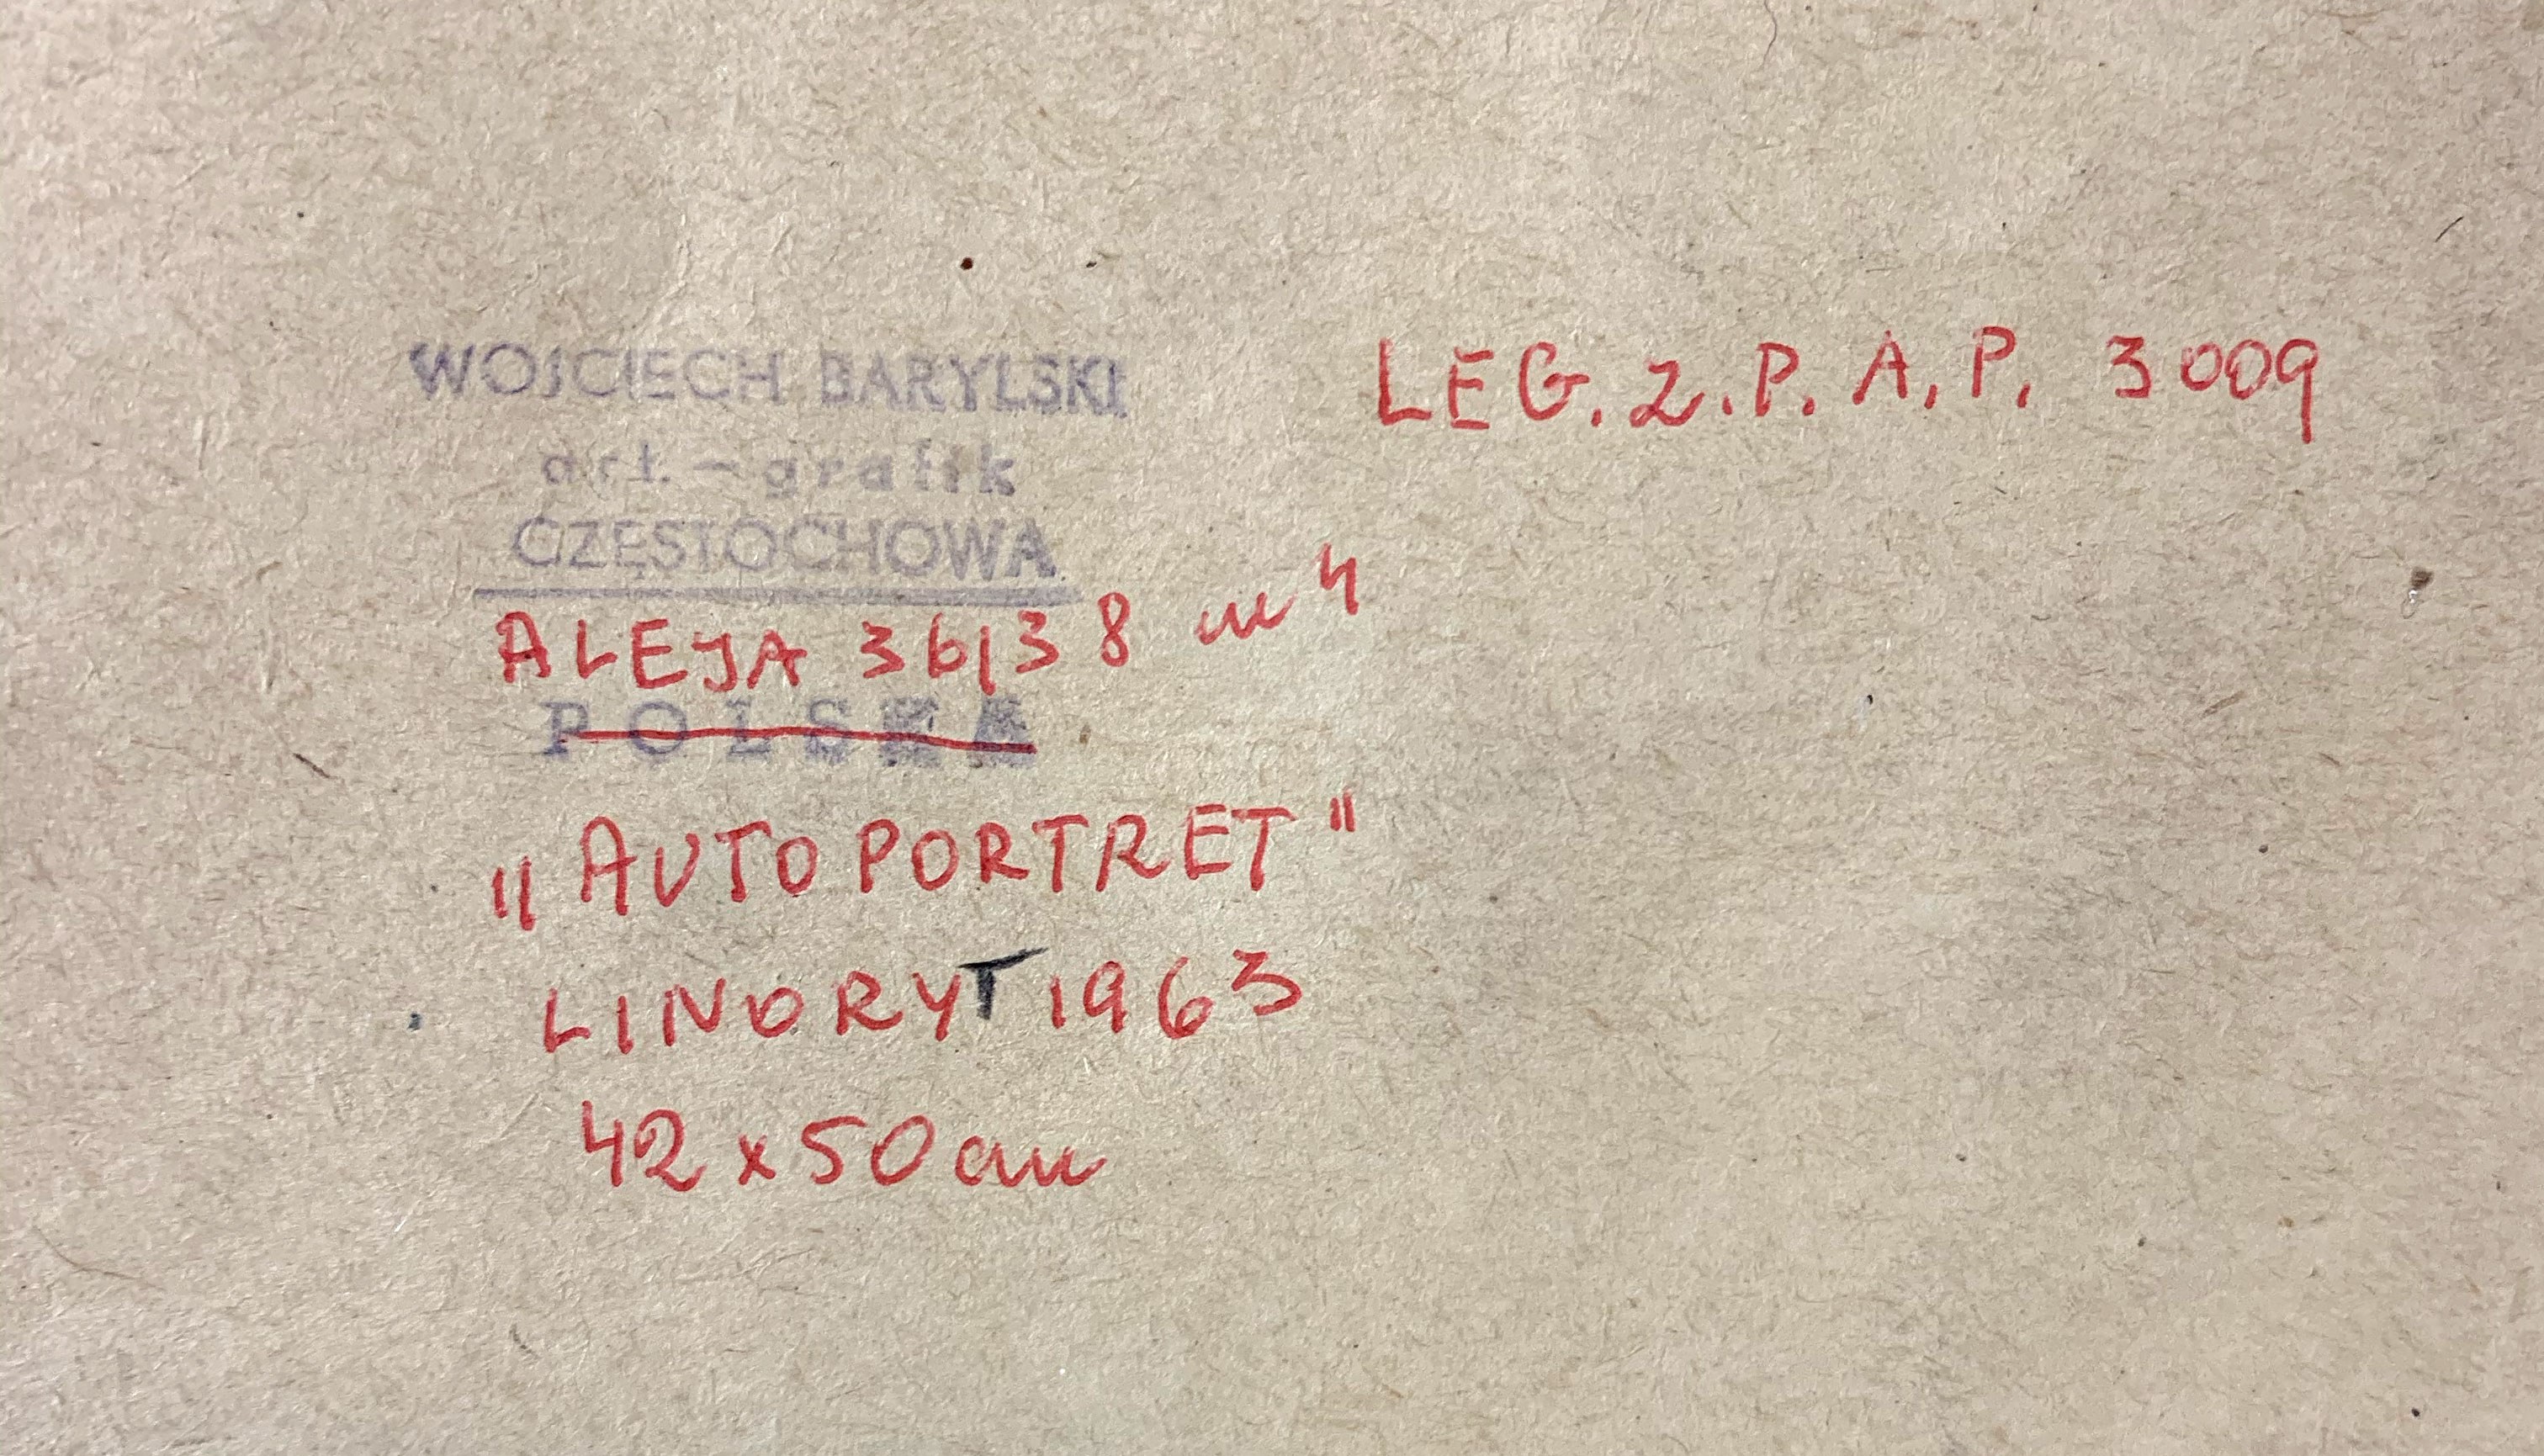 WOJCIECH BARYLSKI
art. – grafik
CZĘSTOCHOWA
ALEJA 36/38 m 4
POLSKA
LEG. Z.P.A.P. 3009
„AUTOPORTRET"
LINORYT 1963
42 x 50 cm